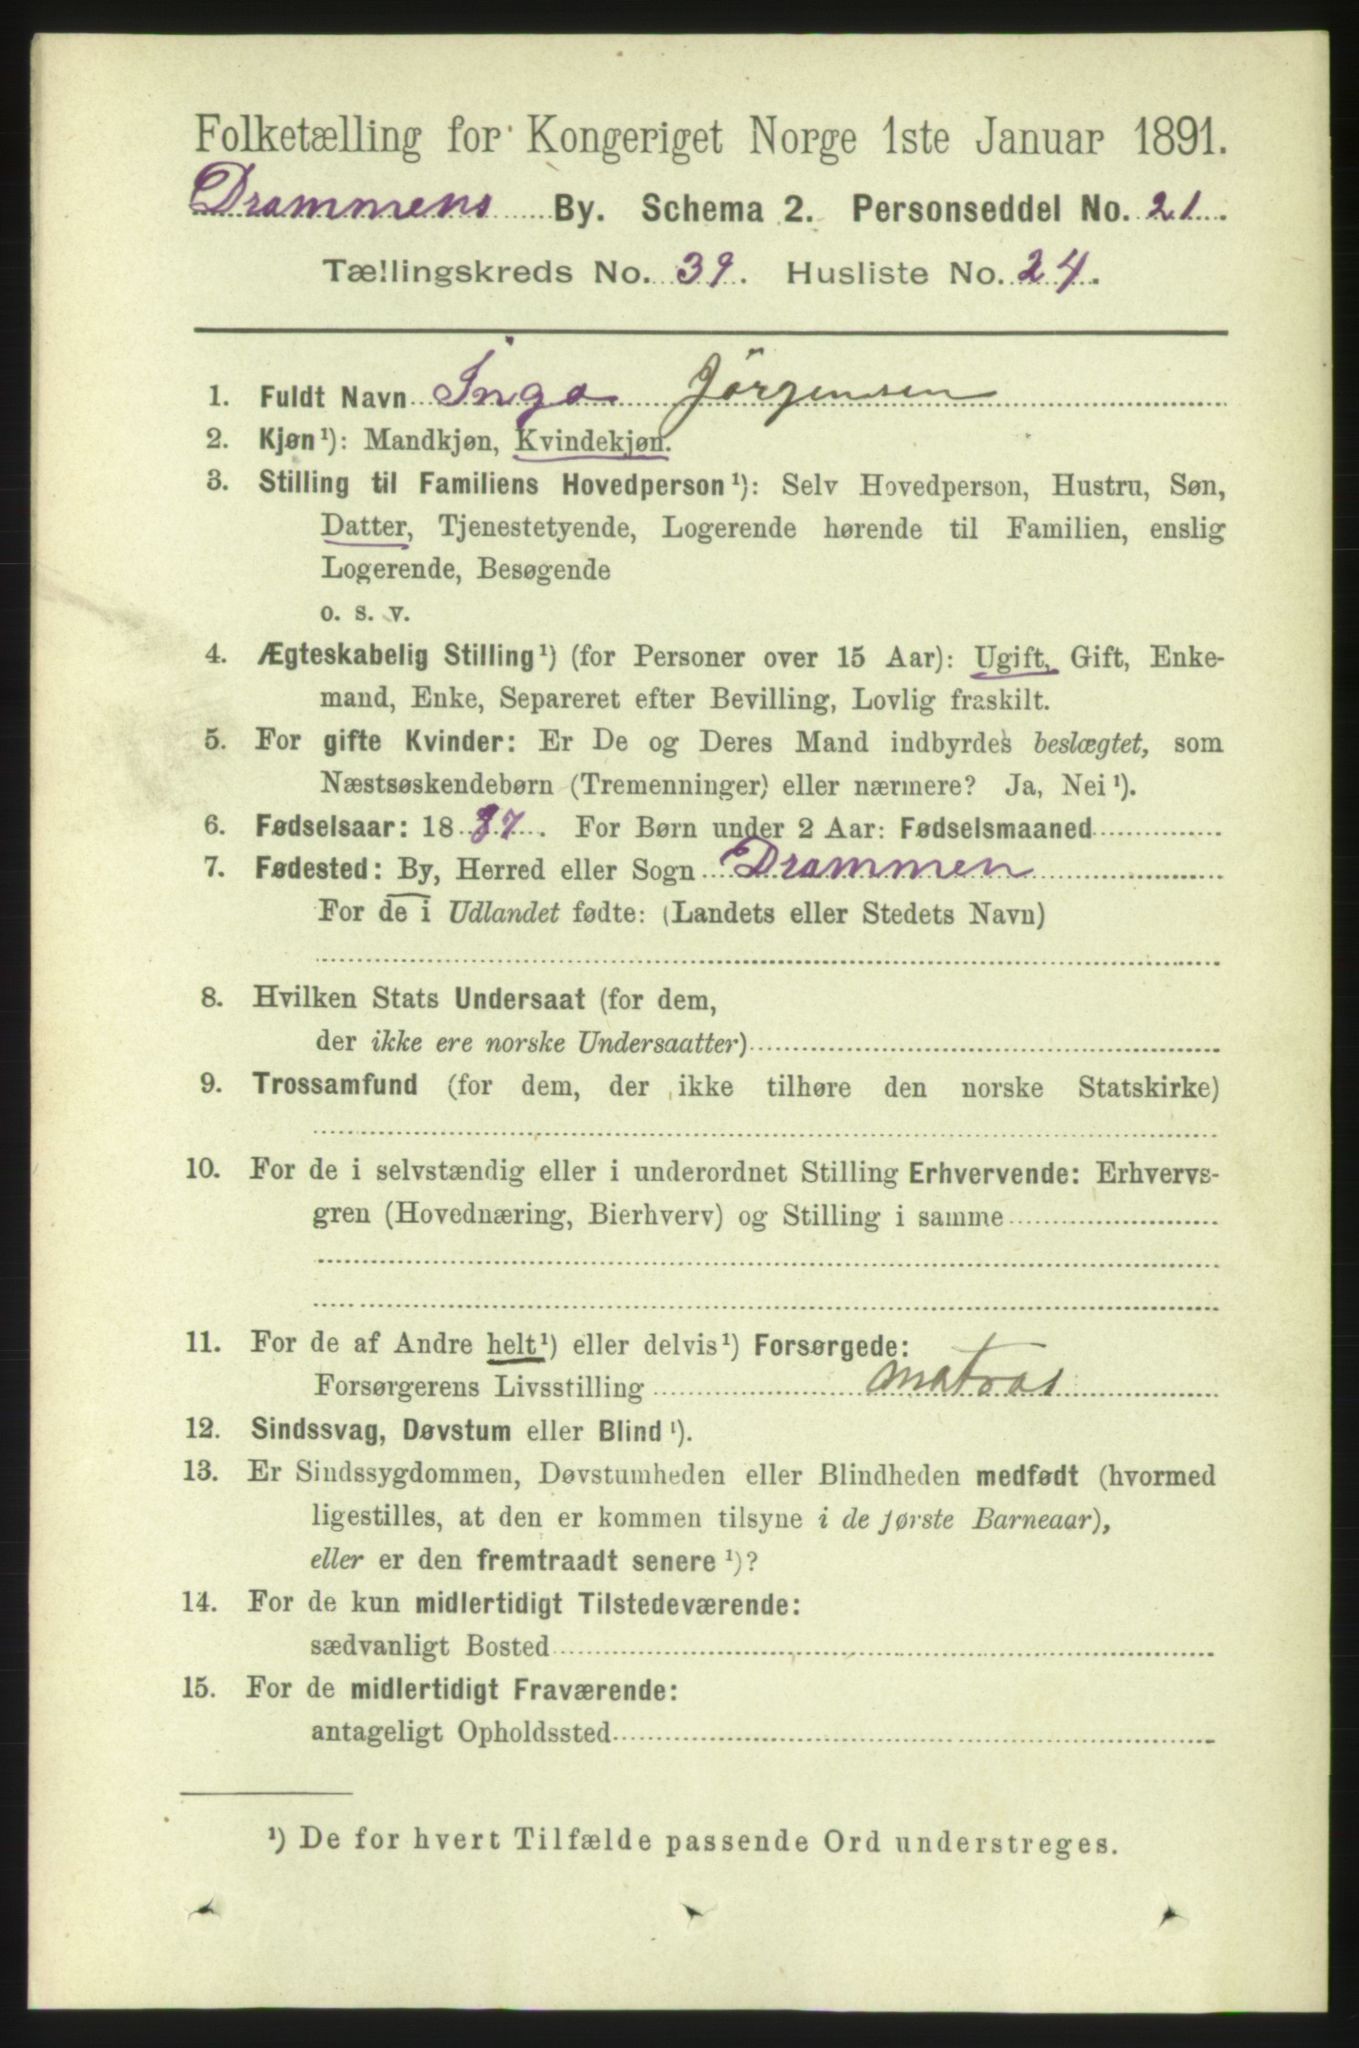 Folketælling for Kongeriget Norge 1ste Januar 1891.
Drammens By. Schema 2. Personseddel No. 21.
Tællingskreds No. 39. Husliste No. 24.
1. Fuldt Navn Inga Jörgensen
2. Kjøn¹): Mandkjøn, Kvindekjøn.
3. Stilling til Familiens Hovedperson¹): Selv Hovedperson, Hustru, Søn,
Datter, Tjenestetyende, Logerende hørende til Familien, enslig
Logerende, Besøgende
o. s. v.
4. Ægteskabelig Stilling¹) (for Personer over 15 Aar): Ugift, Gift, Enke-
mand, Enke, Separeret efter Bevilling, Lovlig fraskilt.
5. For gifte Kvinder: Er De og Deres Mand indbyrdes beslægtet, som
Næstsøskendebørn (Tremenninger) eller nærmere? Ja, Nei¹).
6. Fødselsaar: 1887. For Børn under 2 Aar: Fødselsmaaned
7. Fødested: By, Herred eller Sogn Drammen
For de i Udlandet fødte: (Landets eller Stedets Navn)
8. Hvilken Stats Undersaat (for dem,
der ikke ere norske Undersaatter)
9. Trossamfund (for dem, der ikke tilhøre den norske Statskirke)
10. For de i selvstændig eller i underordnet Stilling Erhvervende: Erhvervs-
gren (Hovednæring, Bierhverv) og Stilling i samme
11. For de af Andre helt¹) eller delvis¹) Forsørgede:
Forsørgerens Livsstilling matros
12. Sindssvag, Døvstum eller Blind¹).
13. Er Sindssygdommen, Døvstumheden eller Blindheden medfødt (hvormed
ligestilles, at den er kommen tilsyne i de første Barneaar),
eller er den fremtraadt senere¹)?
14. For de kun midlertidigt Tilstedeværende:
sædvanligt Bosted
15. For de midlertidigt Fraværende:
antageligt Opholdssted
¹) De for hvert Tilfælde passende Ord understreges.